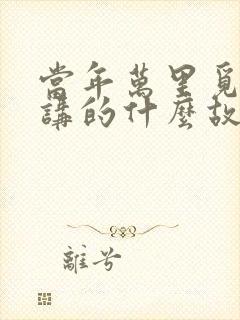 當年萬里覓
講的什麼故
離兮